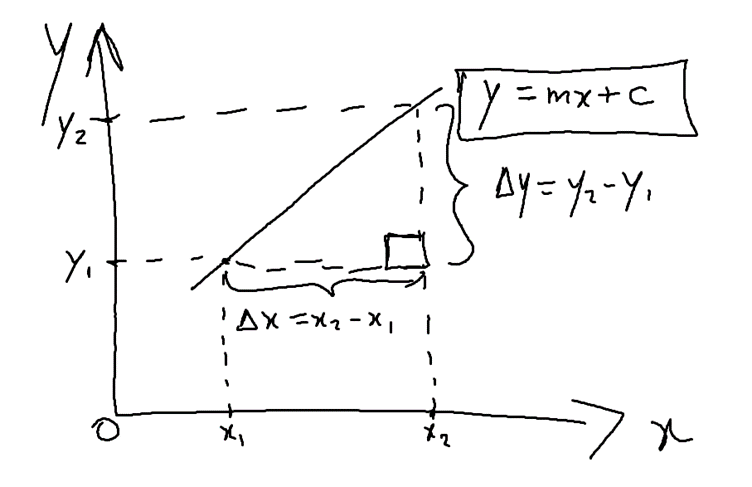 y
y₂
y = mx + c
Δy = y₂ - y₁
y₁
Δx = x₂ - x₁
0
x₁
x₂
x